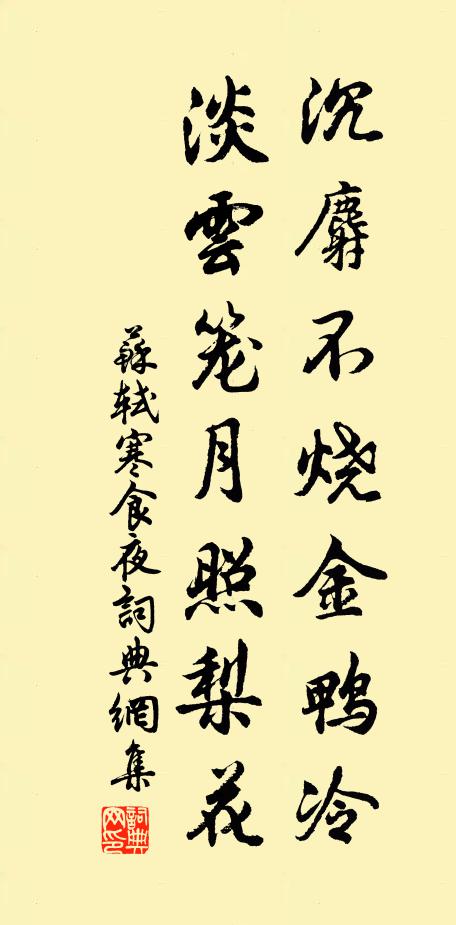 沉麝不烧金鸭冷
淡雲笼月照梨花
蘇軾寒食夜詞典網集
詞典网印